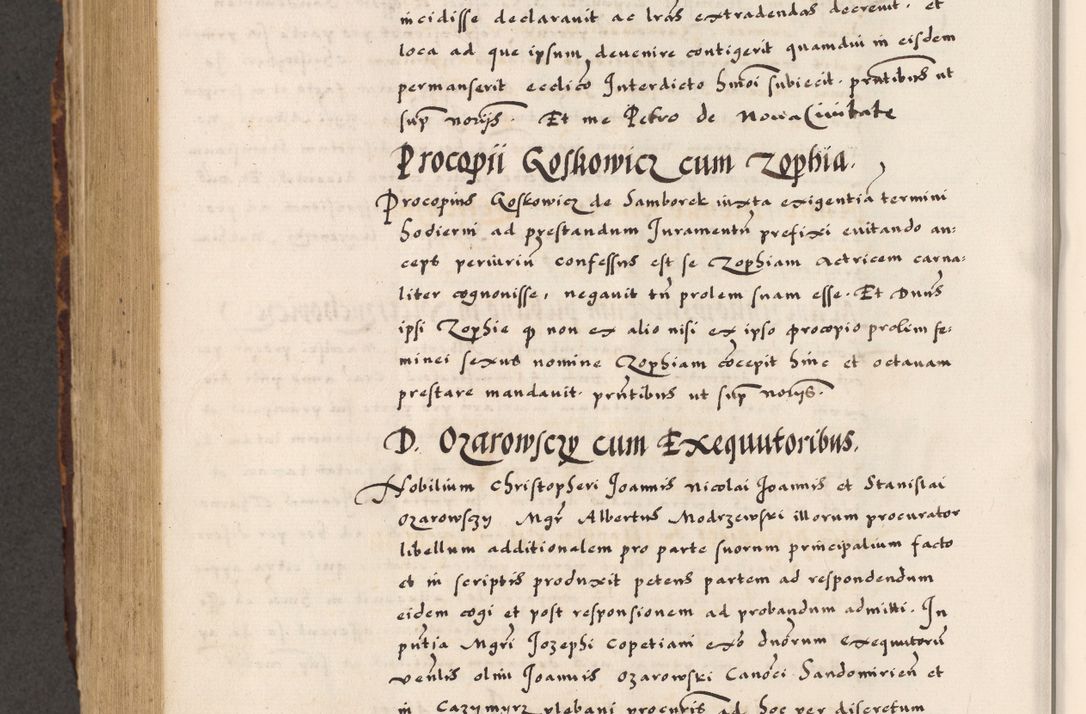 incidisse declaravit ac lras extradendas decrevit. et
loca ad que ipsum devenire contigerit quamdiu in eisdem
permanserit ecclico Interdicto hmoi subiecit. pntibus ut
sup noriis. Et me Petro de Nowa Civitate
Procopii Goskowicz cum Zophia.
Procopius Goskowicz de Samborek iuxta exigentia termini
hodierni ad prestandum Iuramentu prefixi evitando an=
ceps periuriu confessus est se Zophiam Actricem carna=
liter cognovisse, negavit tn prolem suam esse. Et Dnus
ipsi Zophie q non ex alio nisi ex ipso procopio prolem fe=
minei sexus nomine Zophiam cocepit hinc et octavam
prestare mandavit. pntibus ut sup noriis.
D. Ozarowsczy cum Exequutoribus.
Nobilium Christopheri Joannis Nicolai Joannis et Stanislai
Ozarowszy Mgr Albertus Modrzewski illorum procurator
libellum additionalem pro parte suorum principalium facto
et in scriptis produxit petens partem ad respondendum
eidem cogi et post responsionem ad probandum admitti. In
pntia Mgri Jozephi Copetiani exo duorum exequutoru
venlis olim Joannis Ozarowski Canoci Sandomirien et
in Cazymyrz plebani procuris ad hoc per discretum